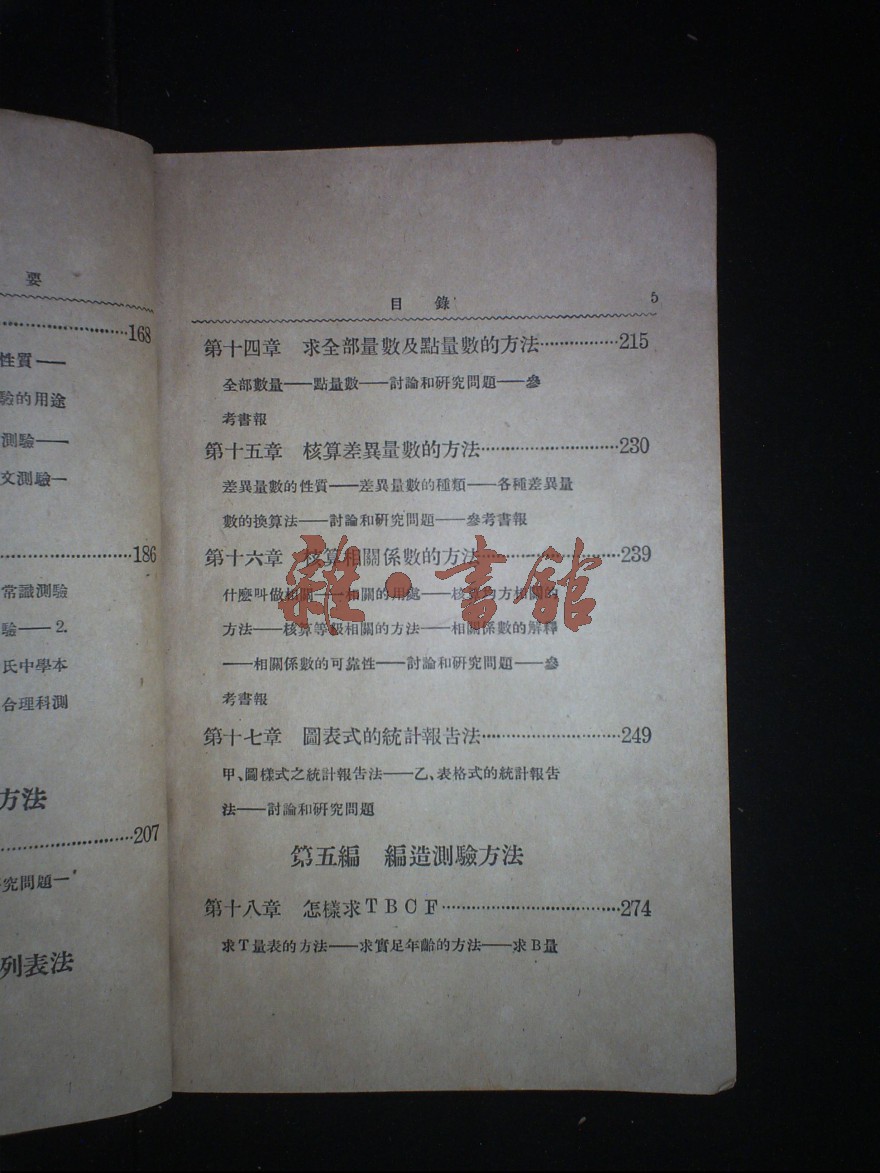 要
168
性質——
驗的用途
測驗——
文測驗—
186
常識測驗
驗——2.
氏中學本
合理科測
方法
207
究問題—
列表法
目錄 5
第十四章 求全部量數及點量數的方法………………215
全部數量——點量數——討論和研究問題——參
考書報
第十五章 核算差異量數的方法………………230
差異量數的性質——差異量數的種類——各種差異量
數的換算法——討論和研究問題——參考書報
第十六章 核算相關係數的方法………………239
什麼叫做相關——相關的用處——核算均方相關的
方法——核算等級相關的方法——相關係數的解釋
——相關係數的可靠性——討論和研究問題——參
考書報
第十七章 圖表式的統計報告法………………249
甲、圖樣式之統計報告法——乙、表格式的統計報告
法——討論和研究問題
第五編 編造測驗方法
第十八章 怎樣求TBCF………………274
求T量表的方法——求實足年齡的方法——求B量
雜·書館